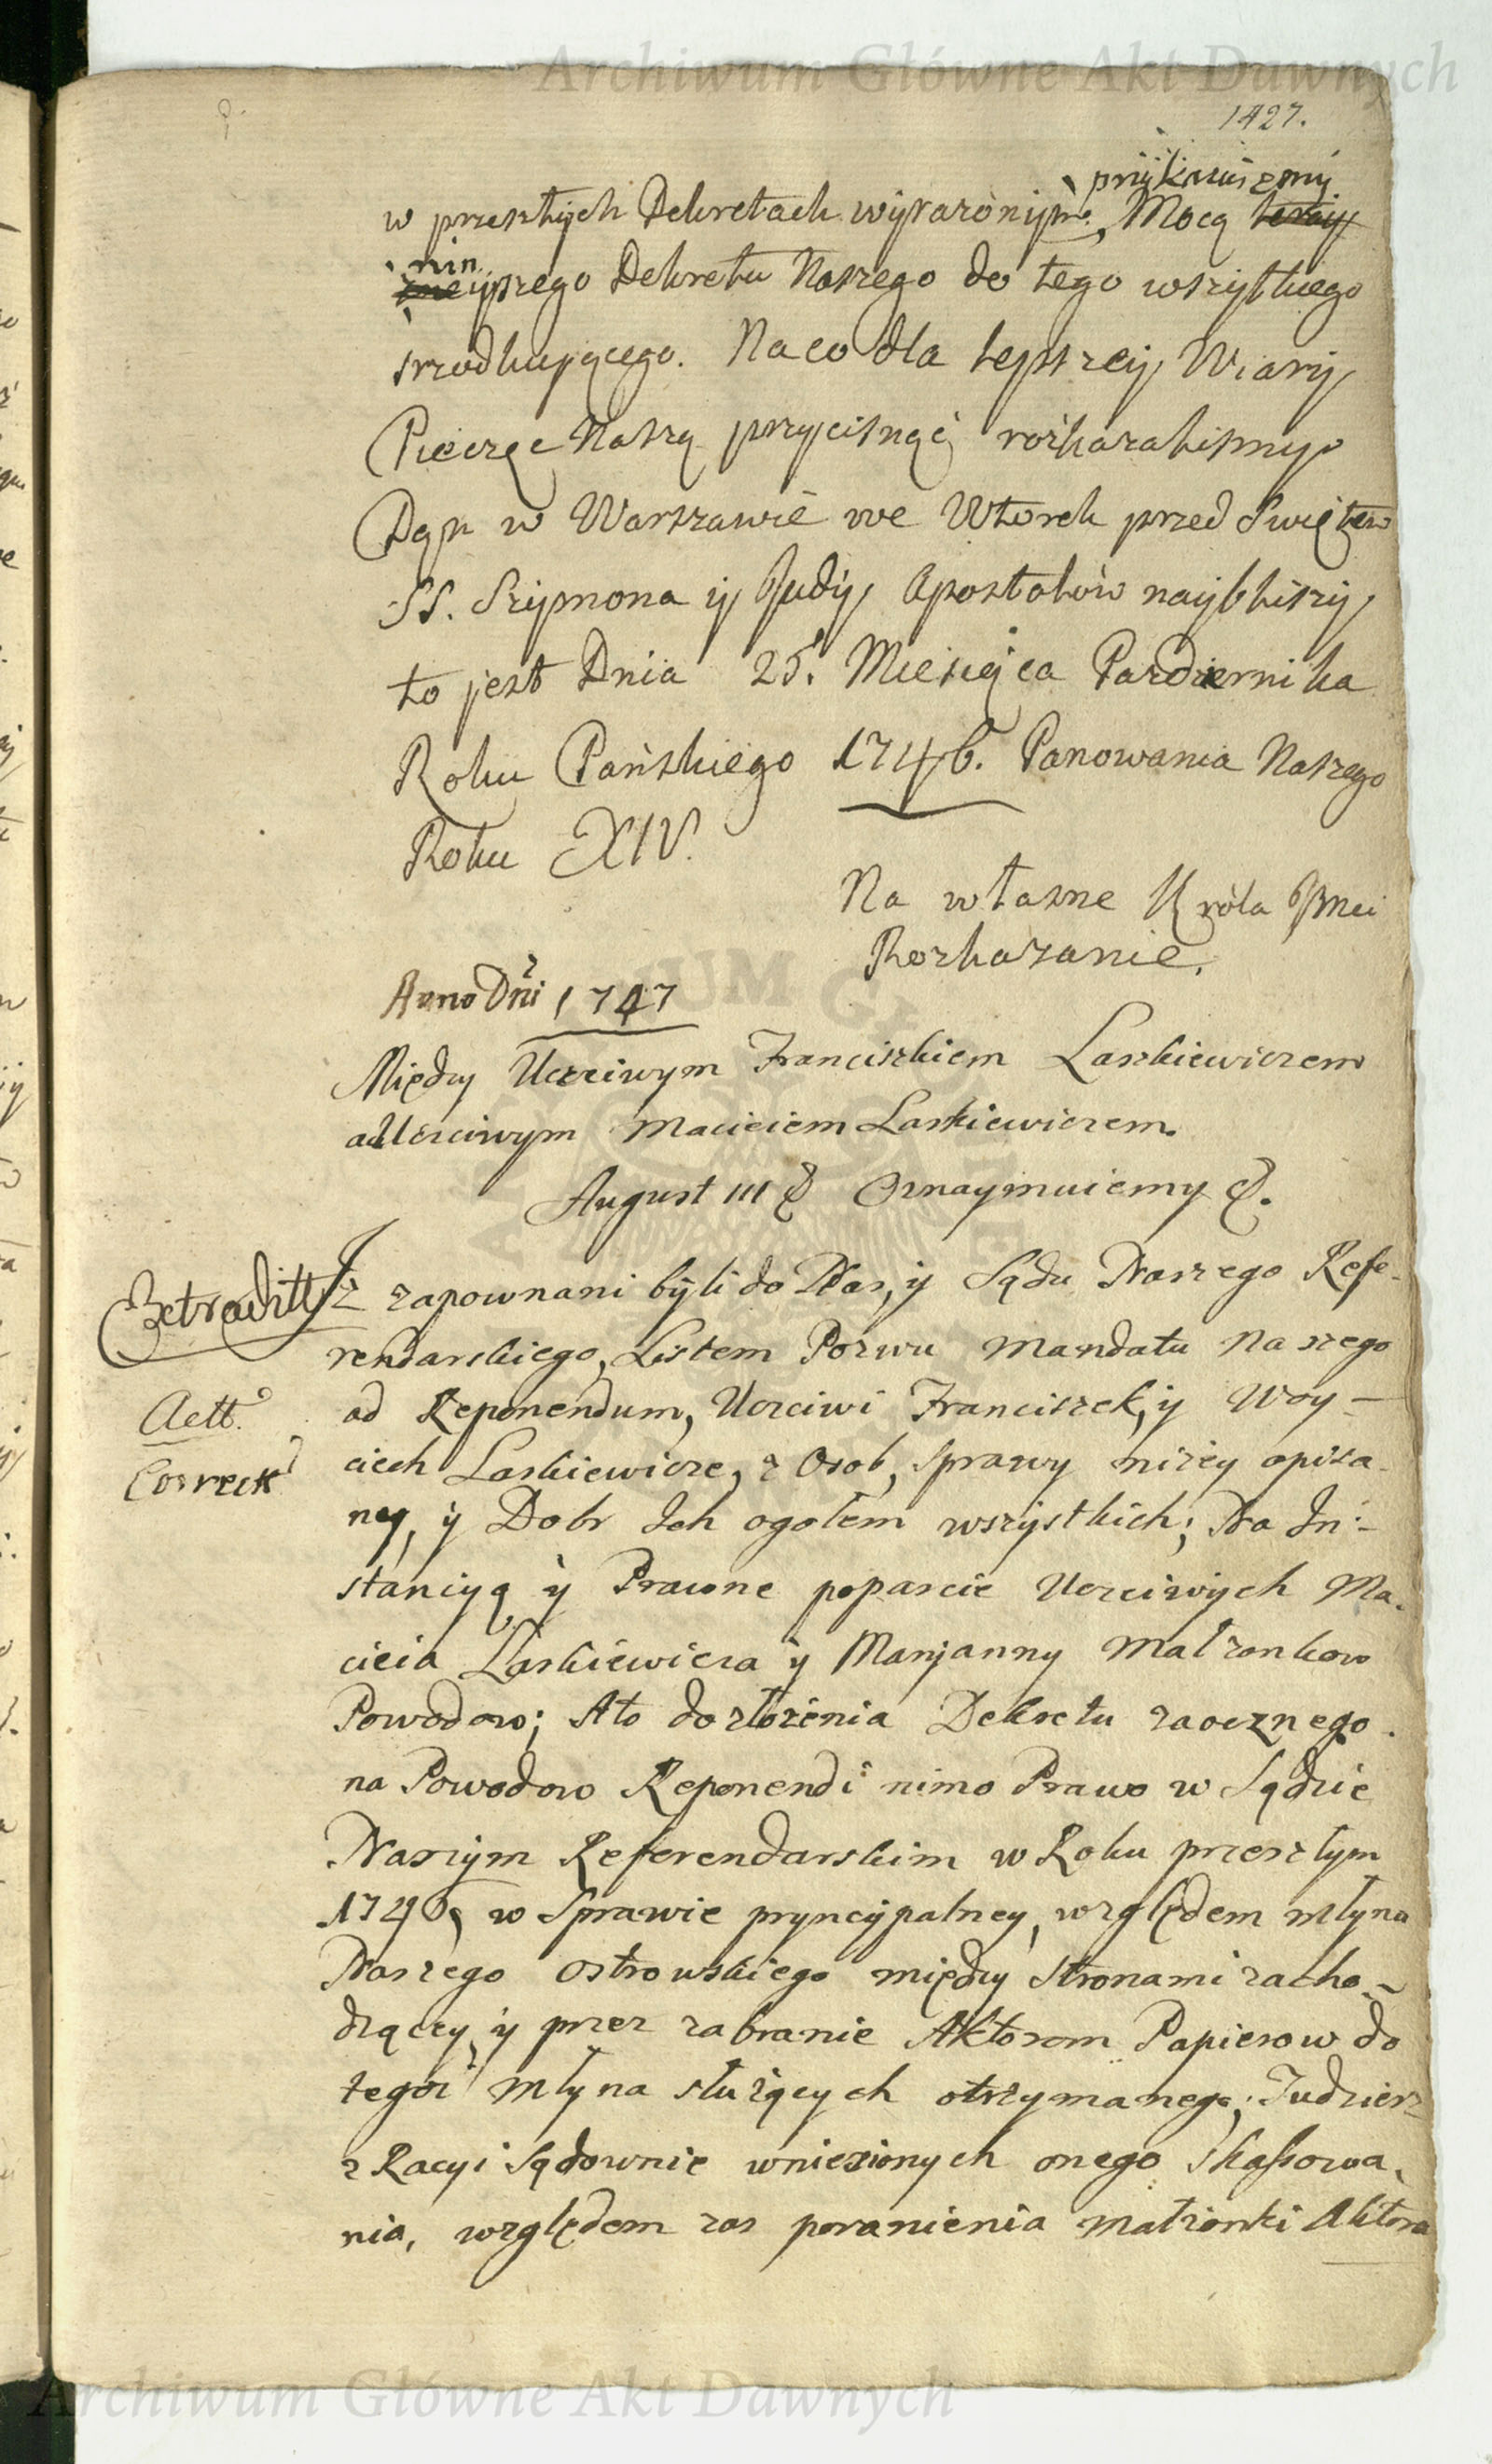 Archiwum Główne Akt Dawnych
1427.
przykazuiemy
w przeszłych Dekretach wyrażonym, Mocą
nin
ieyszego Dekretu Naszego do tego wszystkiego
srzodkuyącego. Na co dla lepszey Wiary
Pieczęc Naszą przycisnąć rozkazalismy
Dan w Warszawie we Wtorek przed Swiętem
SS. Szymona y Judy Apostołow nayblizszy
to jest Dnia 25. Miesiąca Pazdziernika
Roku Pańskiego 1746. Panowania Naszego
Roku XIV.
Na własne Króla Jmci
Rozkazanie.
Anno Dni 1747
Między Uczciwym Franciszkiem Laskiewiczem
a Uczciwym Macieiem Laskiewiczem.
August III & Oznaymuiemy &.
Extraditt
Iż zapozwani byli do Nas, y Sądu Naszego Refe-
rendarskiego, Listem Pozwu Mandatu Naszego
Actt.
ad Reponendum, Uczciwi Franciszek, y Woy-
Correct
ciech Laskiewicze, z Osob, sprawy niżey opisa-
ney, y Dobr Ich ogołem wszystkich; Na In-
stancyą y Prawne poparcie Uczciwych Ma-
cieia Laskiewicza y Maryanny Małzonkow
Powodow; A to do złożenia Dekretu zaocznego
na Powodow Reponendi nimo Prawo w Sądzie
Naszym Referendarskim w Roku przeszłym
1746, w Sprawie pryncypalney, względem Młyna
Naszego Ostrowskiego między Stronami zacho-
dzącey, y przez zabranie Aktorom Papierow do
tegoż Młyna służących otrzymanego; Tudziesz
z Racyi Sądownie wniesionych onego skassowa-
nia, względem zas poranienia Małżonki Aktora
Archiwum Główne Akt Dawnych